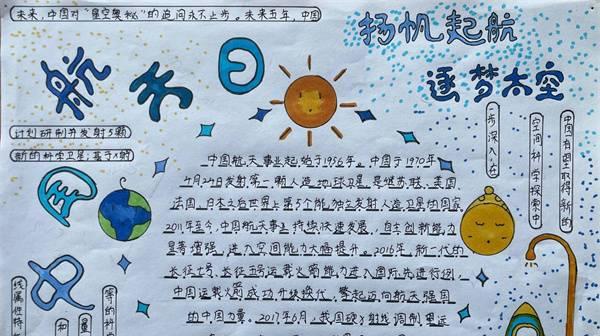 未来,中国对"星空奥秘"的追问永不止步。未来五年,中国
扬帆起航
逐梦太空
航天日
计划研制并发射5颗
新的科学卫星,基于X射
中国航天事业起始于1956年。中国于1970年
4月24日发射第一颗人造地球卫星,是继苏联、美国、
法国、日本之后世界上第5个能独立发射人造卫星的国家。
2011年至今,中国航天事业持续快速发展,自主创新能力
显著增强,进入空间能力大幅提升。2016年,新一代的
长征七号、长征五号运载火箭能力进入国际先进行列,
中国运载火箭成功升级换代,擎起迈向航天强国
的中国力量。2017年6月,我国硬X射线调制望远
中国有望取得新的
空间科学探索中
步深入在
线属性特
等的科
和